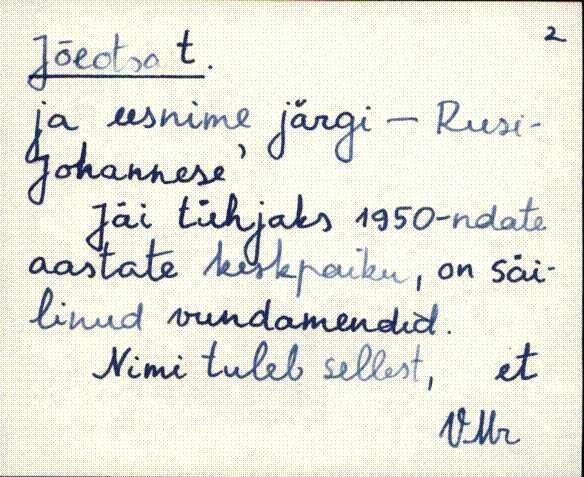 2
Jõeotsa t.
ja eesnime järgi – Rusi-
Johannese'
Jäi tühjaks 1950-ndate
aastate keskpaiku, on säi-
linud vundamendid.
Nimi tuleb sellest, et
VMr